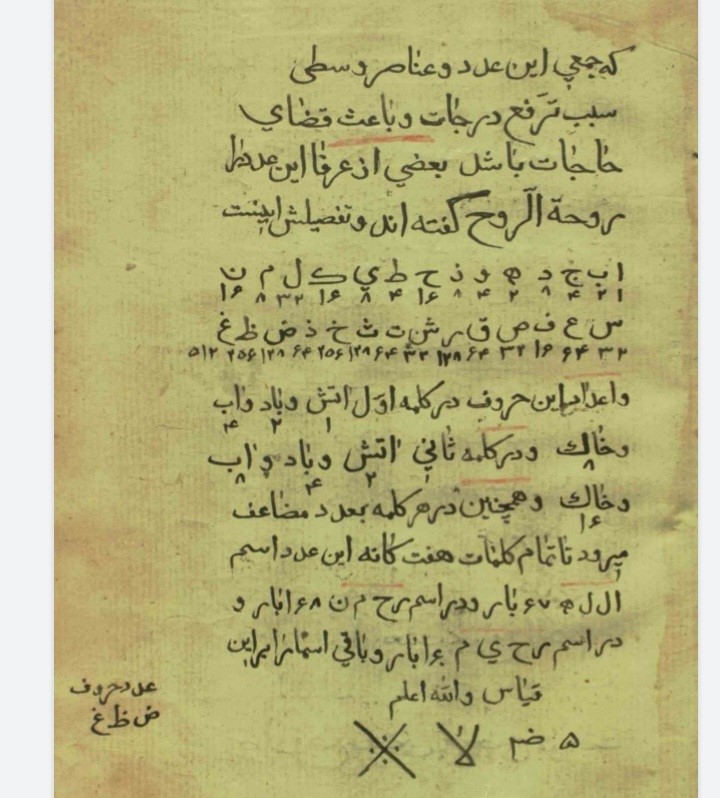 که جمعی این عدد و عناصر وسطی
سبب ترفع درجات و باعث قضای
حاجات باشد بعضی از عرفا این عدد را
روحة الروح گفته اند و تفصیلش اینست
ا ب ج د ه و ذ ح ط ي ك ل م ن
۱ ۲ ۴ ۸ ۲ ۴ ۸ ۱۶ ۴ ۸ ۱۶ ۳۲ ۸ ۱۶
س ع ف ص ق ر ش ت ث خ ذ ض ظ غ
۳۲ ۶۴ ۱۶ ۳۲ ۶۴ ۱۲۸ ۳۲ ۶۴ ۱۲۸ ۲۵۶ ۶۴ ۱۲۸ ۲۵۶ ۵۱۲
و اعداد این حروف در کلمه اول اتش و باد و اب
۱ ۲ ۴
و خاك و در کلمه ثاني اتش و باد و اب
۸ ۲ ۴ ۸
و خاك و همچنین در هر کلمه بعدد مضاعف
۱۶
میرود تا تمام کلمات هفت کانه این عدد اسم
ال ل ه ۶۷ بار و در اسم رح م ن ۱۶۸ بار و
در اسم رح ي م بار و باقي اسما را براین
قیاس والله اعلم
عدد حروف
ض ظ غ
۵ لا